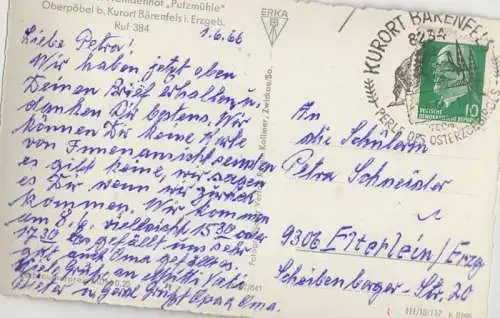 Fremdenhof "Putzmühle"
Oberpöbel b. Kurort Bärenfels i. Erzgeb.
Ruf 384
1.6.66
Liebe Petra!
Wir haben jetzt eben
Deinen Brief erhalten u.
danken Dir bestens. Wir
können Dir keine Karte
von Innenansicht senden
es gibt keine, wir sagen
es Dir wenn wir zurück
kommen. Wir kommen
am 8.6. vielleicht 15 30 oder
17 30 Es gefällt uns sehr
gut auch Oma gefällt es.
Viele Grüße an Mutti Vati
Dieter u. Gerd Grüßt Opa u. Oma.
ERKA
Kallmer, Zwickau/Sa.
KURORT BÄRENFELS
8234
PERLE DES OSTERZGEBIRGES
10
DEUTSCHE
DEMOKRATISCHE REPUBLIK
An
die Schülerin
Petra Schneider
9306 Elterlein/Erzg
Scheibenberger-Str. 20
III/18/137